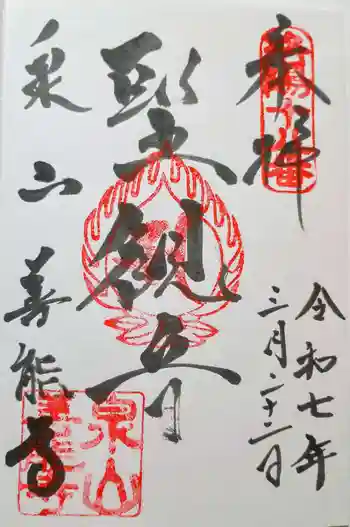 奉拝
令和七年
三月二十二日
聖観音
泉山
善能寺